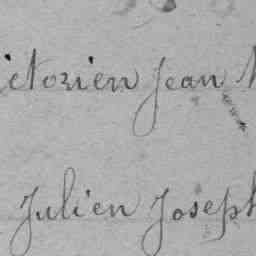 ictorien Jean
Julien Joseph